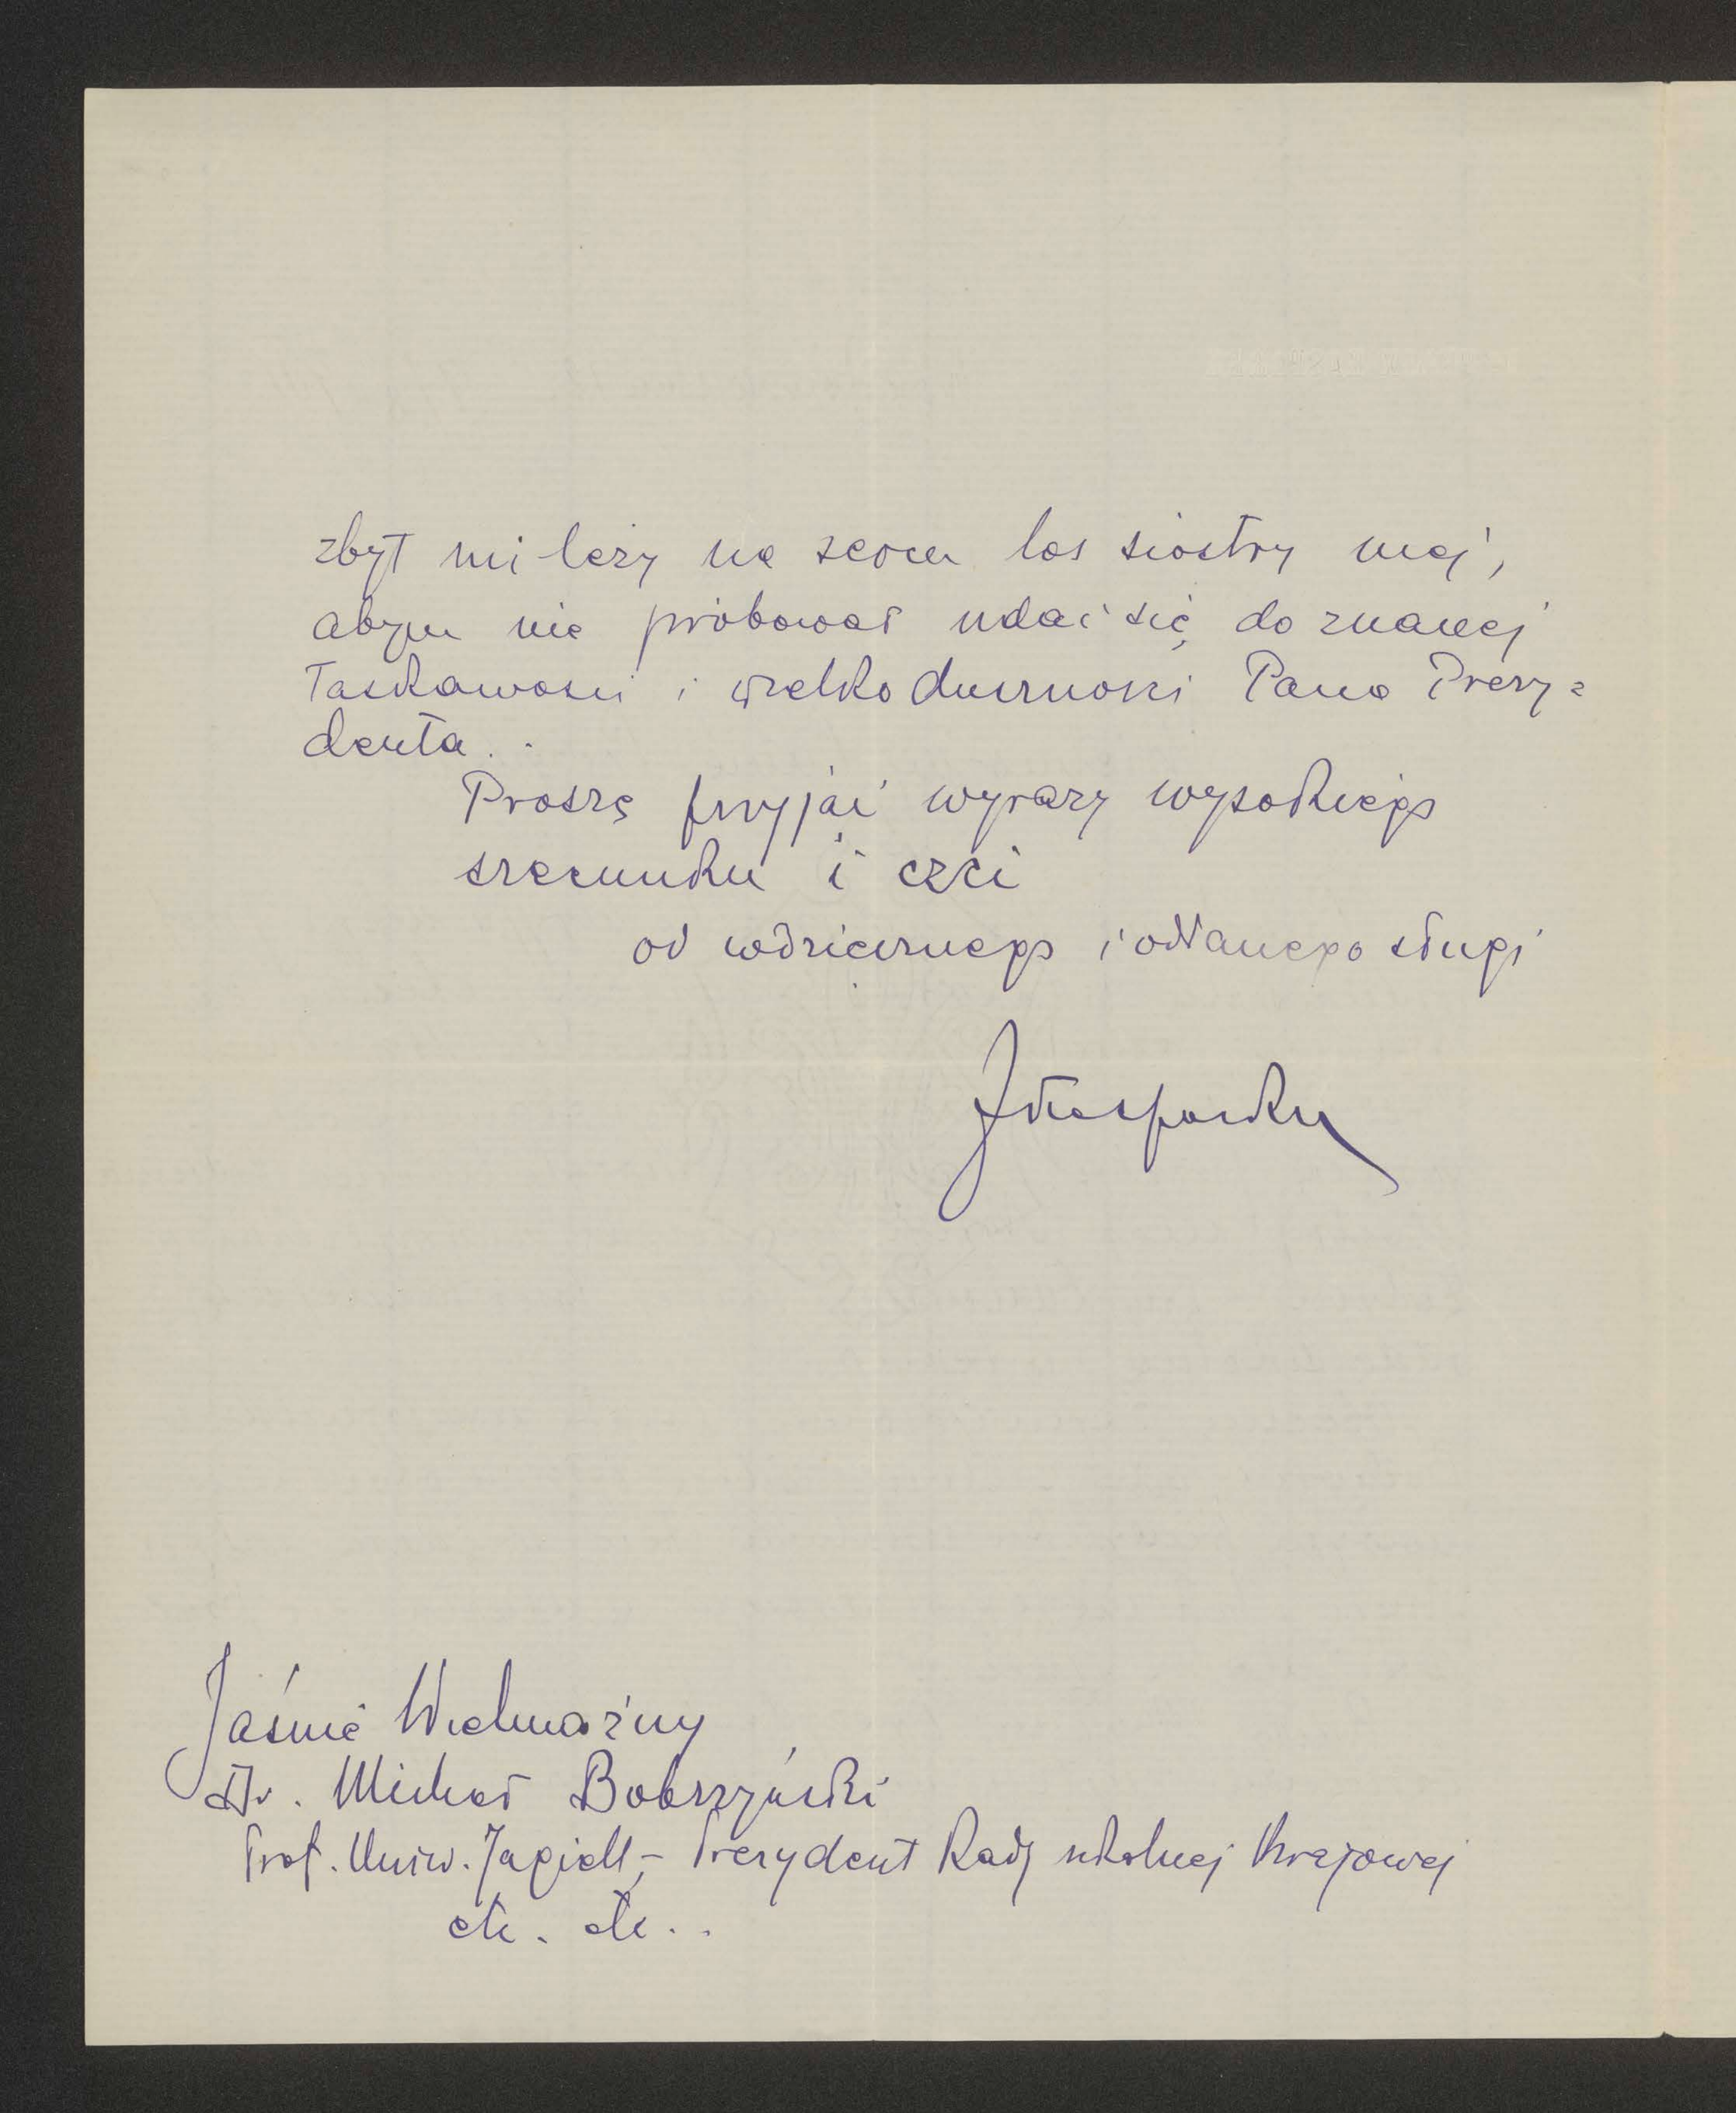 zbyt mi leży na sercu los siostry mej,
abym nie próbował udać się do znanej
łaskawości i wielkoduszności Pana Prezy=
denta.
Proszę przyjąć wyrazy wysokiego
szacunku i czci
od wdzięcznego i oddanego sługi
Jaśnie Wielmożny
Dr. Michał Bobrzyński
Prof. Uniw. Jagiell. – Prezydent Rady szkolnej Krajowej
etc. etc..